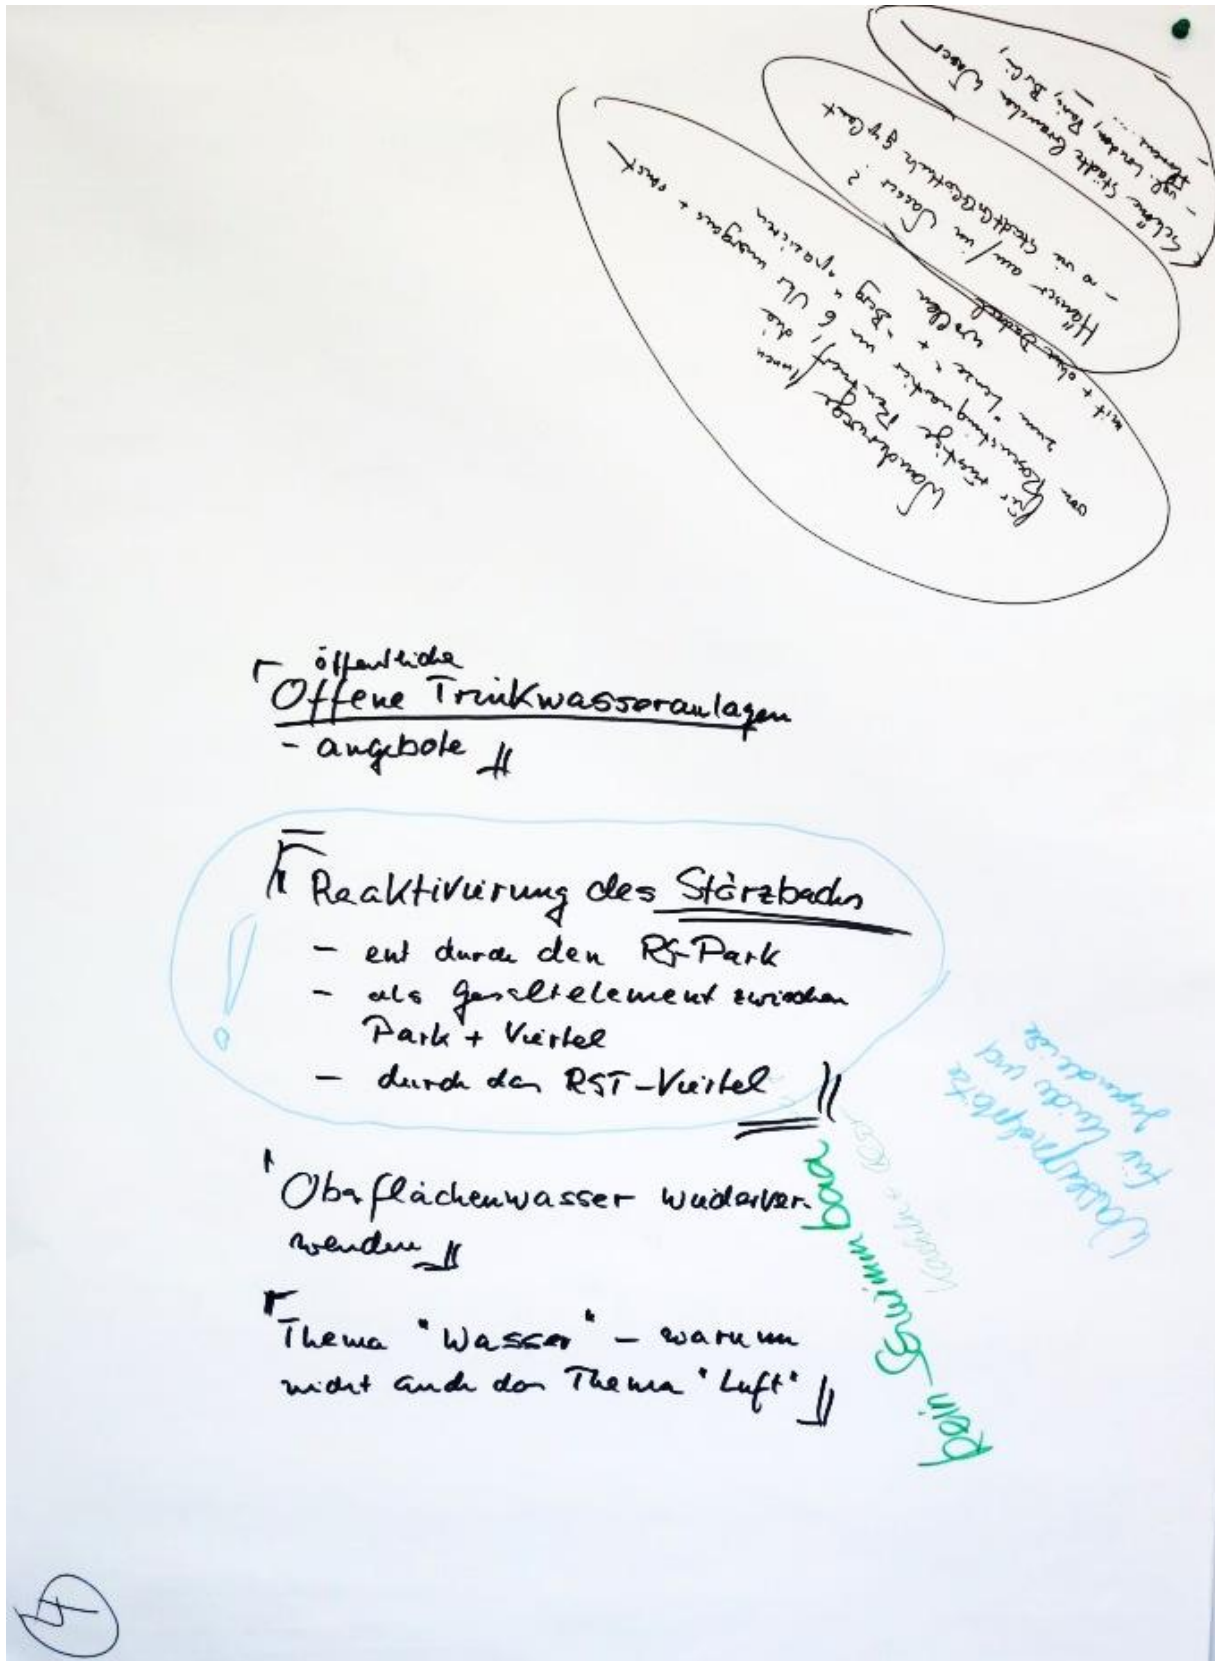 Schöne Städte brauchen Wasser
- vgl. London, Paris, Berlin,
Florenz ...
Häuser am/im Wasser?
- so wie Stadtbibliothek geplant
Wanderwege
für rüstige Rentner/innen die
von Rosensteinquartier um 6 Uhr morgens + sonst
zum "Lenze" + "Berg" spazieren
mit + ohne Dackel wollen
öffentliche
Offene Trinkwasseranlagen
- angebote
Reaktivierung des Störzbachs
- ent durch den RS-Park
- als Gesaltelement zwischen
Park + Viertel
- durch das RST-Viertel
!
Oberflächenwasser wiederver-
wenden
Thema "Wasser" - warum
nicht auch das Thema "Luft"
Kein Schwimmbad
Wasserspielplätze
für Kinder und
Jugendliche
4